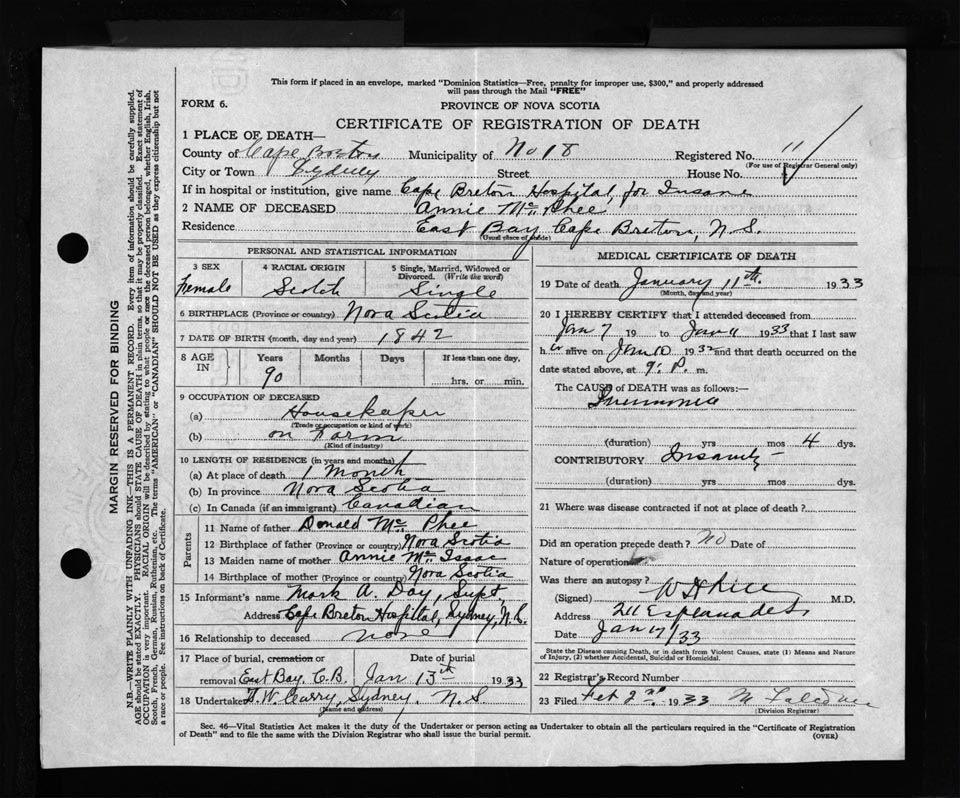 This form if placed in an envelope, marked "Dominion Statistics—Free, penalty for improper use, $300," and properly addressed
will pass through the Mail "FREE"
FORM 6.
PROVINCE OF NOVA SCOTIA
CERTIFICATE OF REGISTRATION OF DEATH
1 PLACE OF DEATH—
County of Cape Breton Municipality of No 18 Registered No. 11
(For use of Registrar General only)
City or Town Sydney Street House No.
If in hospital or institution, give name Cape Breton Hospital, for Insane
2 NAME OF DECEASED Annie Mc Phee
Residence East Bay Cape Breton, N.S.
(Usual place of abode)
PERSONAL AND STATISTICAL INFORMATION
3 SEX Female
4 RACIAL ORIGIN Scotch
5 Single, Married, Widowed or Divorced. (Write the word) Single
6 BIRTHPLACE (Province or country) Nova Scotia
7 DATE OF BIRTH (month, day and year) 1842
8 AGE IN Years 90 Months Days If less than one day hrs. or min.
9 OCCUPATION OF DECEASED
(a) Housekeeper
(Trade or occupation or kind of work)
(b) on Farm
(Kind of industry)
10 LENGTH OF RESIDENCE (in years and months)
(a) At place of death 1 Month
(b) In province Nova Scotia
(c) In Canada (if an immigrant) Canadian
Parents
11 Name of father Donald Mc Phee
12 Birthplace of father (Province or country) Nova Scotia
13 Maiden name of mother Annie Mc Isaac
14 Birthplace of mother (Province or country) Nova Scotia
15 Informant's name Mark A. Day, Supt,
Address Cape Breton Hospital, Sydney, N.S.
16 Relationship to deceased none
17 Place of burial, cremation or Date of burial
removal East Bay, C.B. Jan 13th 1933
18 Undertaker F.W. Curry, Sydney, N.S
(Name and address)
MEDICAL CERTIFICATE OF DEATH
19 Date of Death January 11th. 1933
(Month, day and year)
20 I HEREBY CERTIFY that I attended deceased from
Jan 7 19 to Jan 11 1933 that I last saw
h er alive on Jan 10 1932 and that death occurred on
date stated above, at 9. P. m.
The CAUSE of DEATH was as follows:—
Pneumonia
(duration) yrs mos 4 dys.
CONTRIBUTORY Insanity
(duration) yrs mos dys.
21 Where was disease contracted if not at place of death?
Did an operation precede death? NO Date of
Nature of operation
Was there an autopsy?
(Signed) M.D.
Address 211 Esplanade St
Date Jan 17/33
State the Disease causing Death, or in death from Violent Causes, state (1) Means and Nature
of Injury, (2) whether Accidental, Suicidal or Homicidal.
22 Registrar's Record Number
23 Filed Feb 2nd. 1933
(Division Registrar)
Sec. 46—Vital Statistics Act makes it the duty of the Undertaker or person acting as Undertaker to obtain all the particulars required in the "Certificate of Registration
of Death" and to file the same with the Division Registrar who shall issue the burial permit.
(OVER)
MARGIN RESERVED FOR BINDING
N.B.—WRITE PLAINLY WITH UNFADING INK—THIS IS A PERMANENT RECORD. Every item of information should be carefully supplied.
AGE should be stated EXACTLY. PHYSICIANS should STATE CAUSE OF DEATH in plain terms, so that it may be properly classified. Exact statement of
OCCUPATION is very important. RACIAL ORIGIN will be described by stating to what people or race the deceased person belonged, whether English, Irish,
Scotch, French, German, Russian, Ruthenian, etc. The terms "AMERICAN" or "CANADIAN" SHOULD NOT BE USED as they express citizenship but not
a race or people. See instructions on back of Certificate.